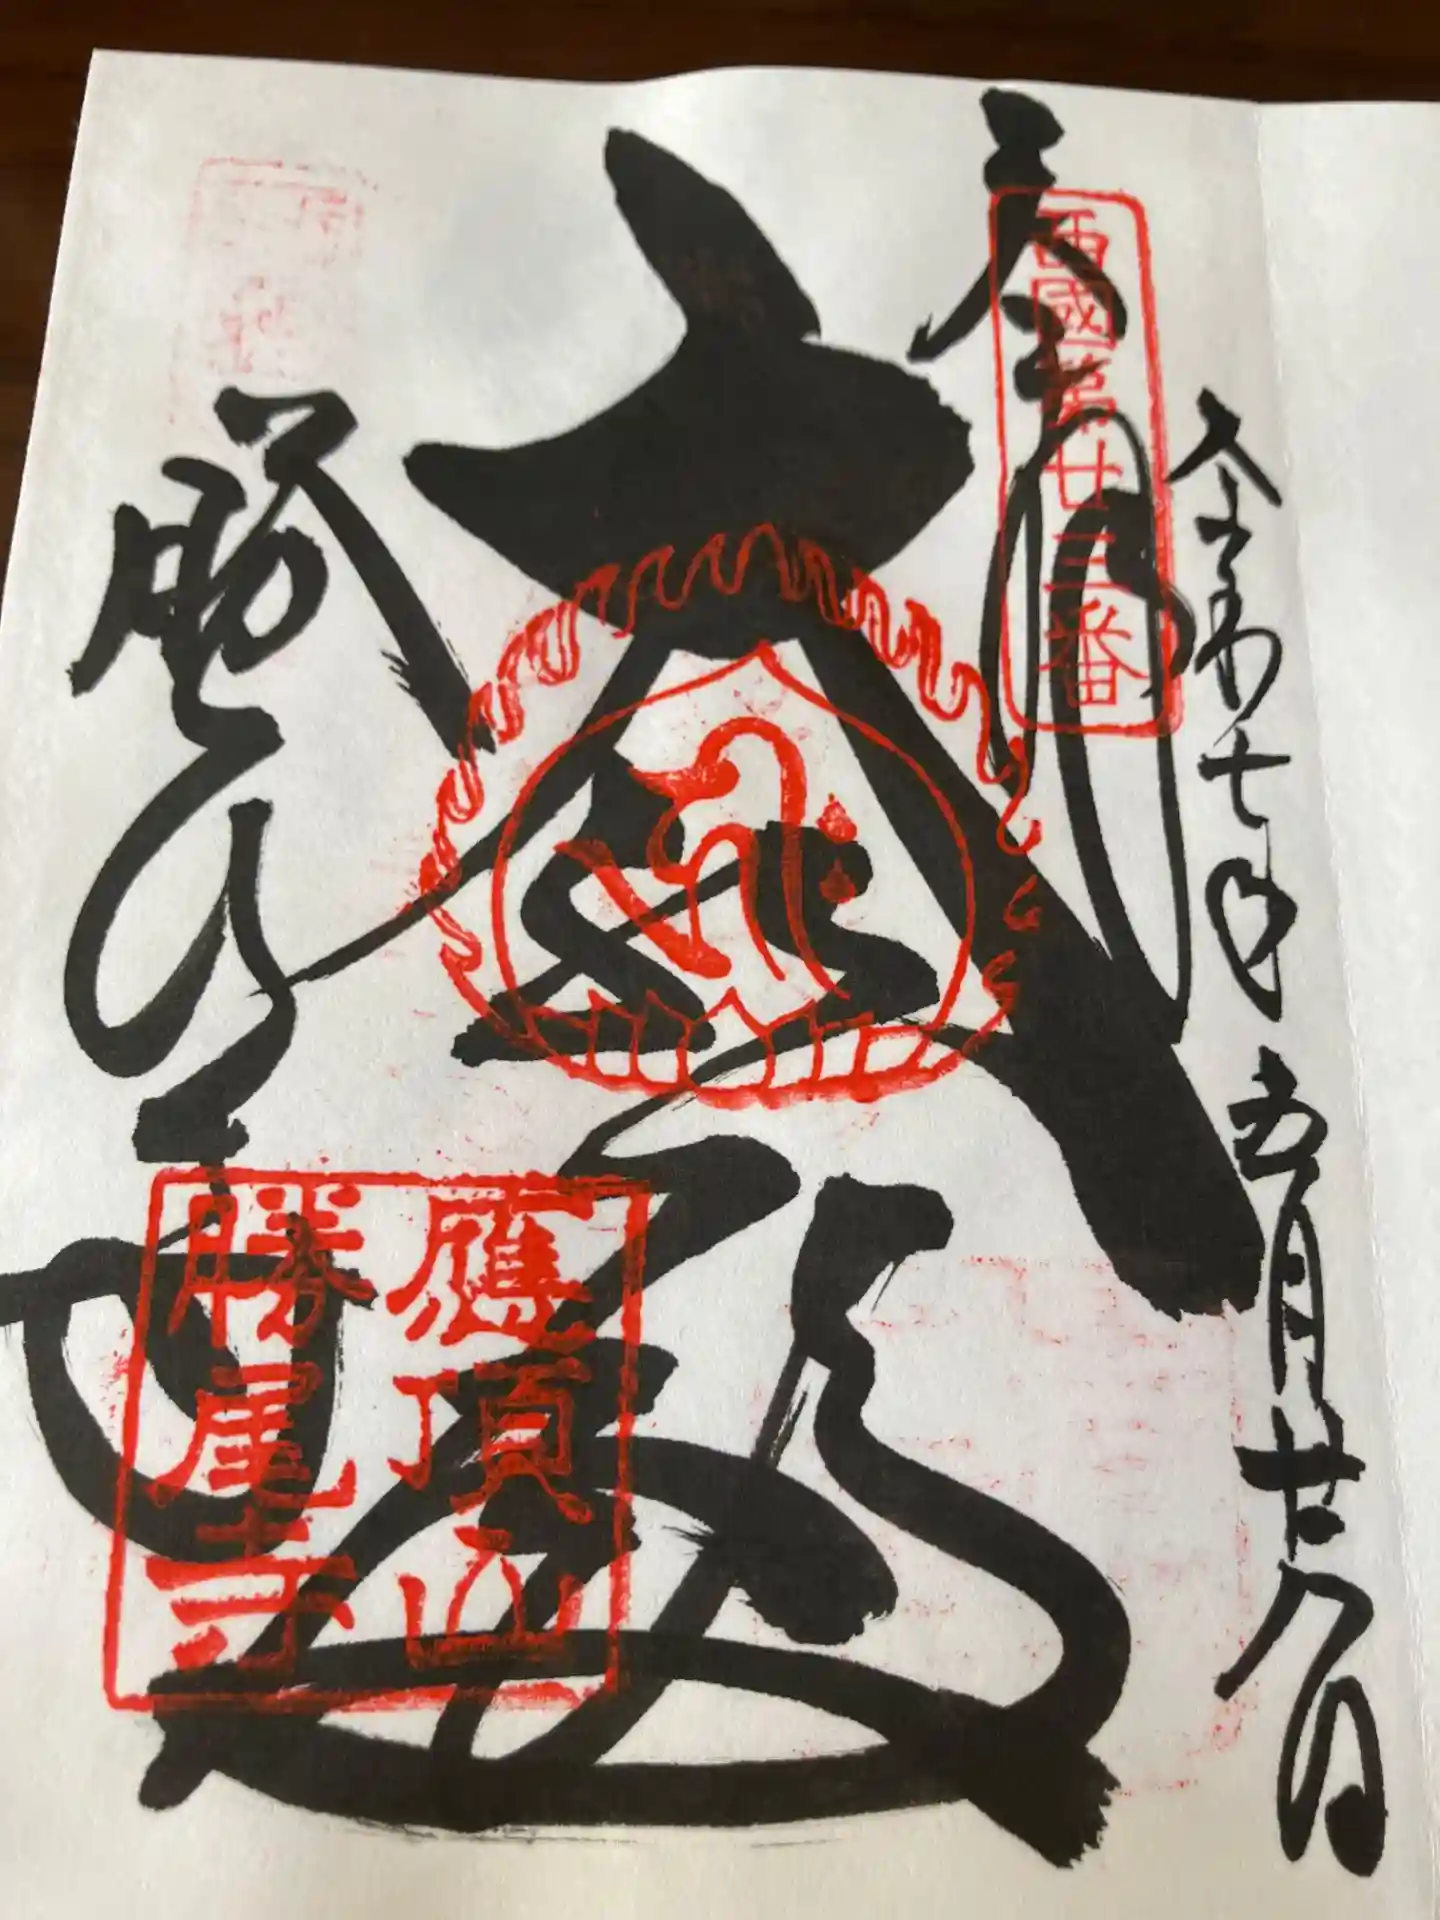 令和七年五月廿八日
奉拝
西國第廿三番
大悲殿
勝尾寺
應頂山
勝尾寺